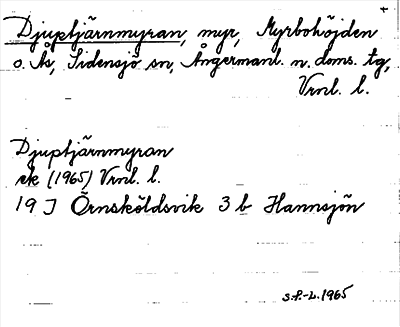 Djuptjärnmyran, myr, Myrbohöjden
o. Ås, Sidensjö sn, Ångermanl. n. doms. tg,
Vrnl. l.
Djuptjärnmyran
ek (1965) Vrnl. l.
19 J Örnsköldsvik 3 b Hannsjön
S.P.-L. 1965